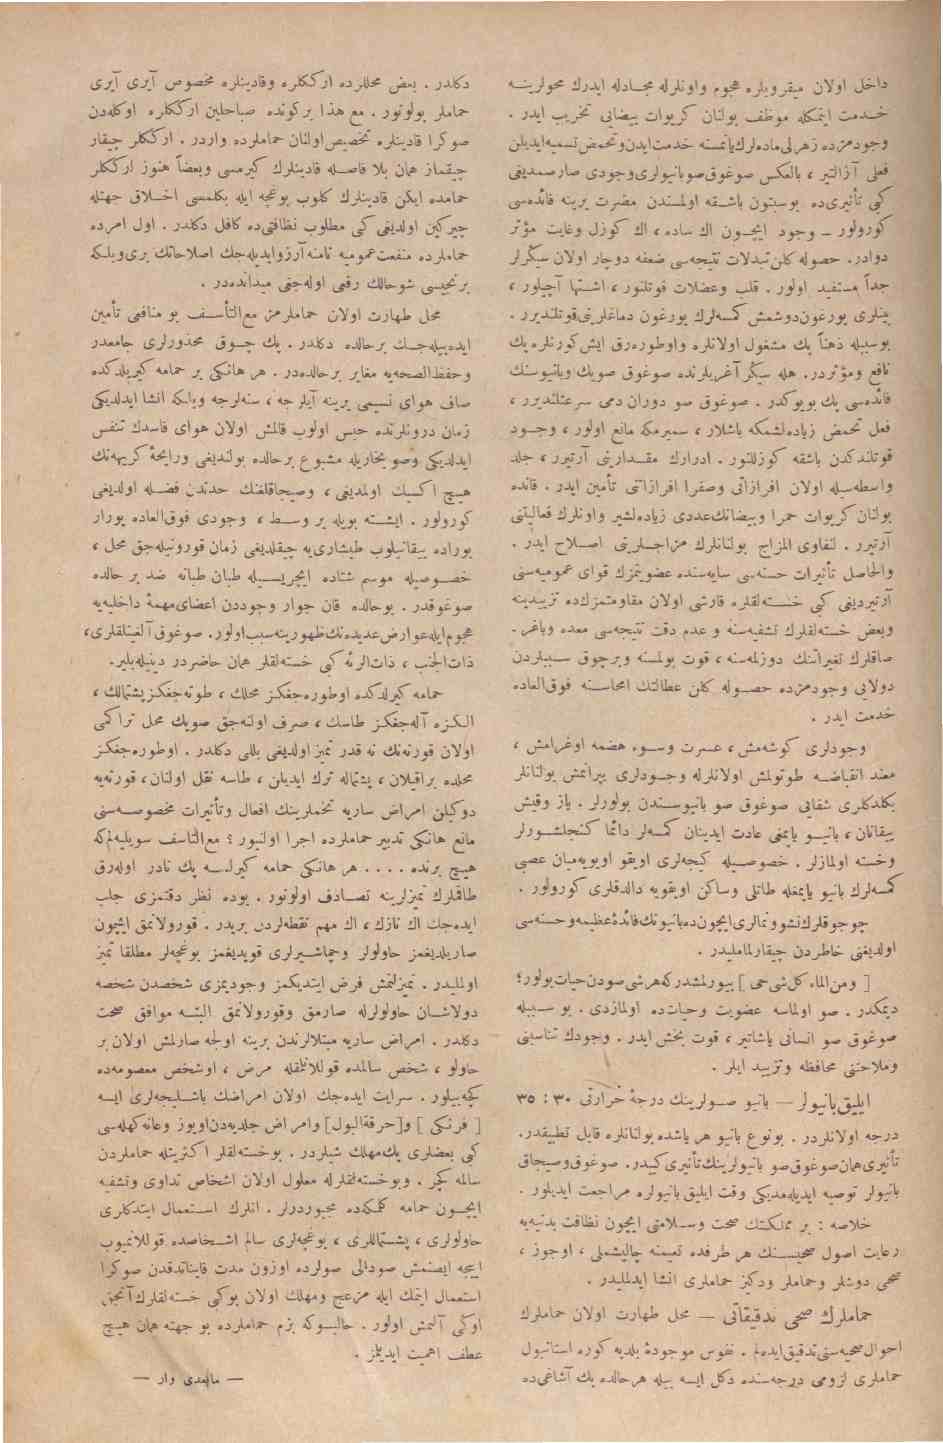 داخل اولان میقروبلره هجوم واونلرله مجـادله ایدرك محولرینـه
خـدمت ایتمكله موظف بولنان كریوات بیضایی تخریب ایدر .
وجودمزده زهرلی ماده‌لرك یانمسنه خدمت ایدن و تحمض تسمیه ایدیلن
فعلی آزالتیر ، بالعكس صوغوق صو بانیولری وجودی صارصمدیغی
كبی تأثیری ده بوسبتون باشـقه اولمسندن مضرت یرینه فائده‌سی
كورولور ــ وجود ایچـون اك ساده ، اك كوزل وغایت مؤثر
دوادر. حصوله كلن تبدلات نتیجه‌سی ضعفه دوچار اولان سیكرلر
جداً مستفید اولور . قلب وعضلات قوتلنور ، اشـتها آچیلور ،
بینلری یورغون دوشمش كمسه‌لرك یورغون دماغلرینی قوتلندیرر .
بوسببله ذهناً پك مشغول اولانلره و اوطوره‌رق ایش كورنلره پك
نافع ومؤثردر. هله سیكر آغریلرنده صوغوق صویك وبانیوسنك
فائده‌سی پك بویوكدر . صوغوق صو دوران دمی سرعتلندیرر ،
فعل تحمض زیاده‌لشمكه باشلار ، سمیرمكه مانع اولور ، وجـود
قوتلندكدن باشقه كوزللنور . ادرارك مقـدارینی آرتیرر ، جلد
واسطه‌سیله اولان افرازاتی وصفرا افرازاتنی تأمین ایدر . قانده
بولنان كریوات حمرا وبیضانك عددی زیاده‌لشیر واونلرك فعالیتنی
آرتیرر . لنفاوی المزاج بولنانلرك مزاجـلرینی اصـلاح ایدر .
والحاصل تأثیرات حسنه‌سی سایه‌سنده عضویتمزك قوای عمومیه‌سنی
آرتیردیغی كبی خسـته‌لقلره قارشی اولان مقاومتمزك ده تزییدینه
وبعض خسته‌لقلرك تشفیه‌سنه و عدم دقت نتیجه‌سی معده وباغر ـ
صاقلرك تغیراتنك دوزلمه‌سنه ، قوت بولمسنه وبرچوق سـببلردن
دولایی وجودمزده حصـوله كلن عطالتك امحاسـنه فوق‌العاده
خدمت ایدر .
وجودلری كوشه‌مش ، عسرت وسـوء هضمه اوغرامش ،
معند انقباضـه طوتولمش اولانلرله وجـودلری ییرانمش بولنانلر
بكلدكلری شفایی صوغوق صو بانیوسـندن بولورلر . یاز وقیش
ییقانان ، بانیـو یاپمغی عادت ایدینان كمسه‌لر دائما كنجلشـورلر
وخسته اولمازلر . خصوصـیله كیجه‌لری اویقو اویویه‌میان عصبی
كمسه‌لرك بانیو یاپمغله طاتلی وساكن اویقویه دالدقلری كورولور .
چوجوقلرك نشوونمالری ایچون ده بانیونك فائدهٔ عظیمه وحسنه‌سی
اولدیغنی خاطردن چیقارلمامـلیدر .
[ ومن الماء كل شی حی ] بیورلمشدركه هرشی صودن حیات بولور؛
دیمكدر . صو اولماسه عضویت وحیات‌ده اولمازدی . بو سـببله
صوغوق صو انسانی یاشاتیر ، قوت بخش ایدر . وجودك تناسبنی
وملاحتنی محافظه وتزیید ایلر .
ایلیق بانیولر — بانیو صـولرینك درجهٔ حرارتی ۳۰ : ۳۵
درجه اولانلردر . بونوع بانیو هر یاشده بولنانلره قابل تطبیقدر.
تأثیری همان صوغوق صو بانیولرینك تأثیری كبیدر. صوغوق وصیجاق
بانیولر توصیه ایدیله‌مدیكی وقت ایلیق بانیولره مراجعت ایدیلور .
خلاصه : بر مملكتك صحت وسـلامتی ایچون نظافت بدنیه‌یه
رعایت اصول صحیسـنك هر طرفده تعیمنه چالیشملی ، اوجوز ،
صحی دوشلر وحماملر ودكیز حماملری انشا ایدلملیدر .
حماملرك صحی تدقیقاتی — محل طهارت اولان حماملرك
احوال صحیه‌سنی تدقیق ایده‌لم . نفوس موجودهٔ بلدیه كوره استانبول
حماملری لزومی درجه‌سنده دكل ایسه بیله هرحالده پك آشاغی‌ده
دكلدر . بعض محللرده ارككلره وقادینلره مخصوص آیری آیری
حماملر بولونور . مع هذا بركونده صباحلین ارككلره اوكله‌دن
صوكرا قادینلره تخصیص اولنان حماملرده واردر . ارككلر چیقار
چیقماز همان بلا فاصـله قادینلرك كیرمسی وبعضاً هنوز ارككلر
حمامده ایكن قادینلرك كلوب بوغچه ایله بكلمسی اخـلاق جهتله
چیركین اولدیغی كبی مطلوب نظافتی‌ده كافل دكلدر . اول امرده
حماملرده منفعت عمومیه نامنه آرزو ایدیله‌جك اصلاحاتك بری وبلكه
برنجیسی شوحالك رفعی اوله‌جغی میدانده‌در .
محل طهارت اولان حماملرمز مع‌التأسـف بو منافعی تأمین
ایده‌بیله‌جـك برحالده دكلدر . پك چـوق محذورلری جامعدر
وحفظ الصحه‌یه مغایر برحالده‌در . هر هانكی بر حمامه كیریلدكده
صاف هوای نسیمی یرینه آیلرجه ، سنه‌لرجه وبلكه انشا ایدلدیكی
زمان درونلرنده حبس اولوب قالمش اولان هوای فاسدك تنفس
ایدلدیكی وصو بخاریله مشبوع برحالده بولندیغی ورایحهٔ كریهه‌نك
هیـچ اكسیك اولمدیغی ، وصیجاقلغنك حدندن فضـله اولدیغی
كورولور . ایشـته بویله بر وسـط ، وجودی فوق‌العاده یورار
بوراده ییقانیلوب طیشاری‌یه چیقلدیغی زمان قورونیله‌جق محل ،
خصـوصیله موسم شتاده ایچریسـیله طبان طبانه ضد بر حالده
صوغوقدر . بوحالده قان جوار وجوددن اعضای مهمهٔ داخلیه‌یه
هجوم ایله عوارض عدیده‌نك ظهورینه سبب اولور. صوغوق آلغینلقلری،
ذات الجنب ، ذات‌الرئه كبی خسته‌لقلر همان حاضردر دینیله‌بیلیر.
حمامه كیرلدكده اوطوره‌جغكز محلك ، طوته‌جغكز پشتمالك ،
الكزه آله‌جغكز طاسك ، صرف اولنه‌جق صویك محل تراكمی
اولان قورنه‌نك نه قدر تمیز اولدیغی بللی دكلدر . اوطوره‌جغكز
محلده براقیلان ، پشتماله ترك ایدیلن ، طاسه نقل اولنان ، قورنه‌یه
دوكیلن امراض ساریه تخملرینك افعال وتأثیرات مخصوصـه‌سنی
مانع هانكی تدبیر حماملرده اجرا اولنیور ؟ مع‌التاسف سویلیه‌لم‌كه
هیـچ برنده .... هر هانكی حمامه كیرلـسه پك نادر اوله‌رق
طاقملرك تمیزلرینه تصـادف اولونور . بوده نظر دقتمزی جلب
ایده‌جك اك نازك ، اك مهم نقطه‌لردن بریدر . قورولانمق ایچون
صاریلدیغمز حاولولر وچماشـیرلری قویدیغمز بوغچه‌لر مطلقا تمیز
اولملیدر . تمیزلنمش فرض ایتدیكمز وجودیمزی شخصدن شخصه
دولاشـان حاولولرله صارمق وقورولانمق البتـه موافق صحت
دكلدر . امراض ساریه مبتلالرندن برینه اولجه صارلمش اولان بر
حاولو ، شخص سالمده قوللانلمقله مرض ، اوشخص معصومه‌ده
كچه‌بیلور . سرایت ایده‌جك اولان امراضك باشـلیجه‌لری ایسـه
[ فرنكی ] و[حرقة‌البول] وامراض جلدیه‌دن اویوز وعانه كهله‌سی
كبی بعضلری پك مهلك شیلردر . بوخسته‌لقلر اكثریتله حماملردن
سالمه كچر . وبوخسته‌لقلرله معلول اولان اشخاص تداوی وتشفیه
ایچـون حمامه كلمكده مجبوردرلر . انلرك اسـتعمال ایتدكلری
حاولولری ، پشـتماللری ، بوغچه‌لری سالم اشـخاصده قوللانمیوب
اییجه ایصنمش صودالی صولرده اوزون مدت قایناتدقدن صوكرا
استعمال ایتمك ایله مزعج ومهلك اولان بوكبی خسته‌لقلرك آنجق
اوكی آلنمش اولور . حالبـوكه بزم حماملرده بو جهته همان هیـچ
عطف اهمیت ایدیلمز .
— مابعدی وار —